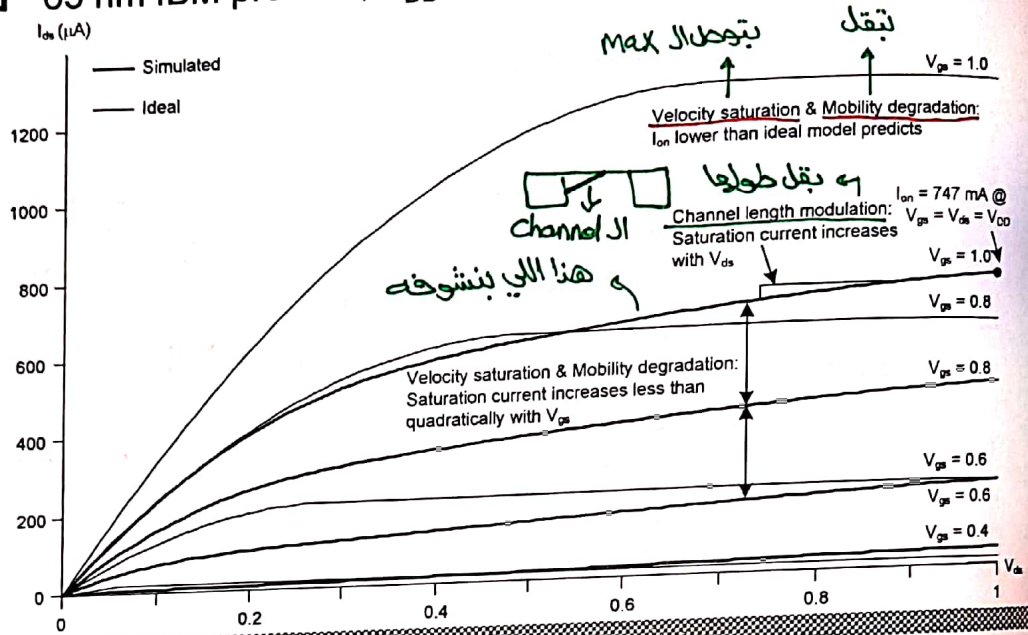 65 nm IBM pro
I_ds (μA)
Simulated
Ideal
بتوصل ال max
تقل
V_gs = 1.0
Velocity saturation & Mobility degradation:
I_on lower than ideal model predicts
يقل طولها
ال channel
Channel length modulation:
Saturation current increases
with V_ds
I_on = 747 mA @
V_gs = V_ds = V_DD
هذا اللي بنشوفه
V_gs = 1.0
V_gs = 0.8
Velocity saturation & Mobility degradation:
Saturation current increases less than
quadratically with V_gs
V_gs = 0.8
V_gs = 0.6
V_gs = 0.6
V_gs = 0.4
V_ds
1200
1000
800
600
400
200
0
0 0.2 0.4 0.6 0.8 1